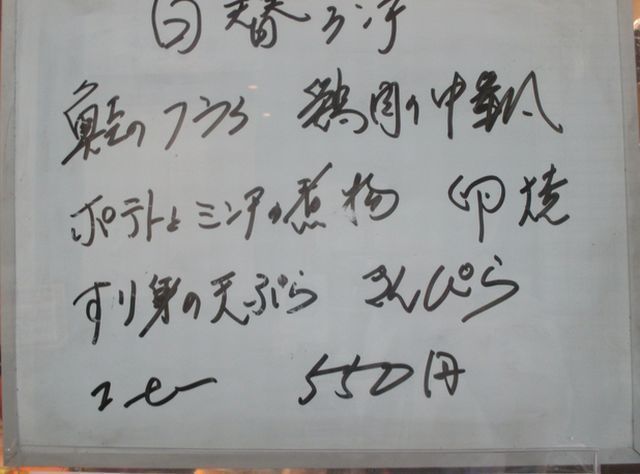 日替ランチ
魚のフライ 鶏肉の中華風
ポテトとミンチの煮物 卵焼
すり身の天ぷら きんぴら
550円